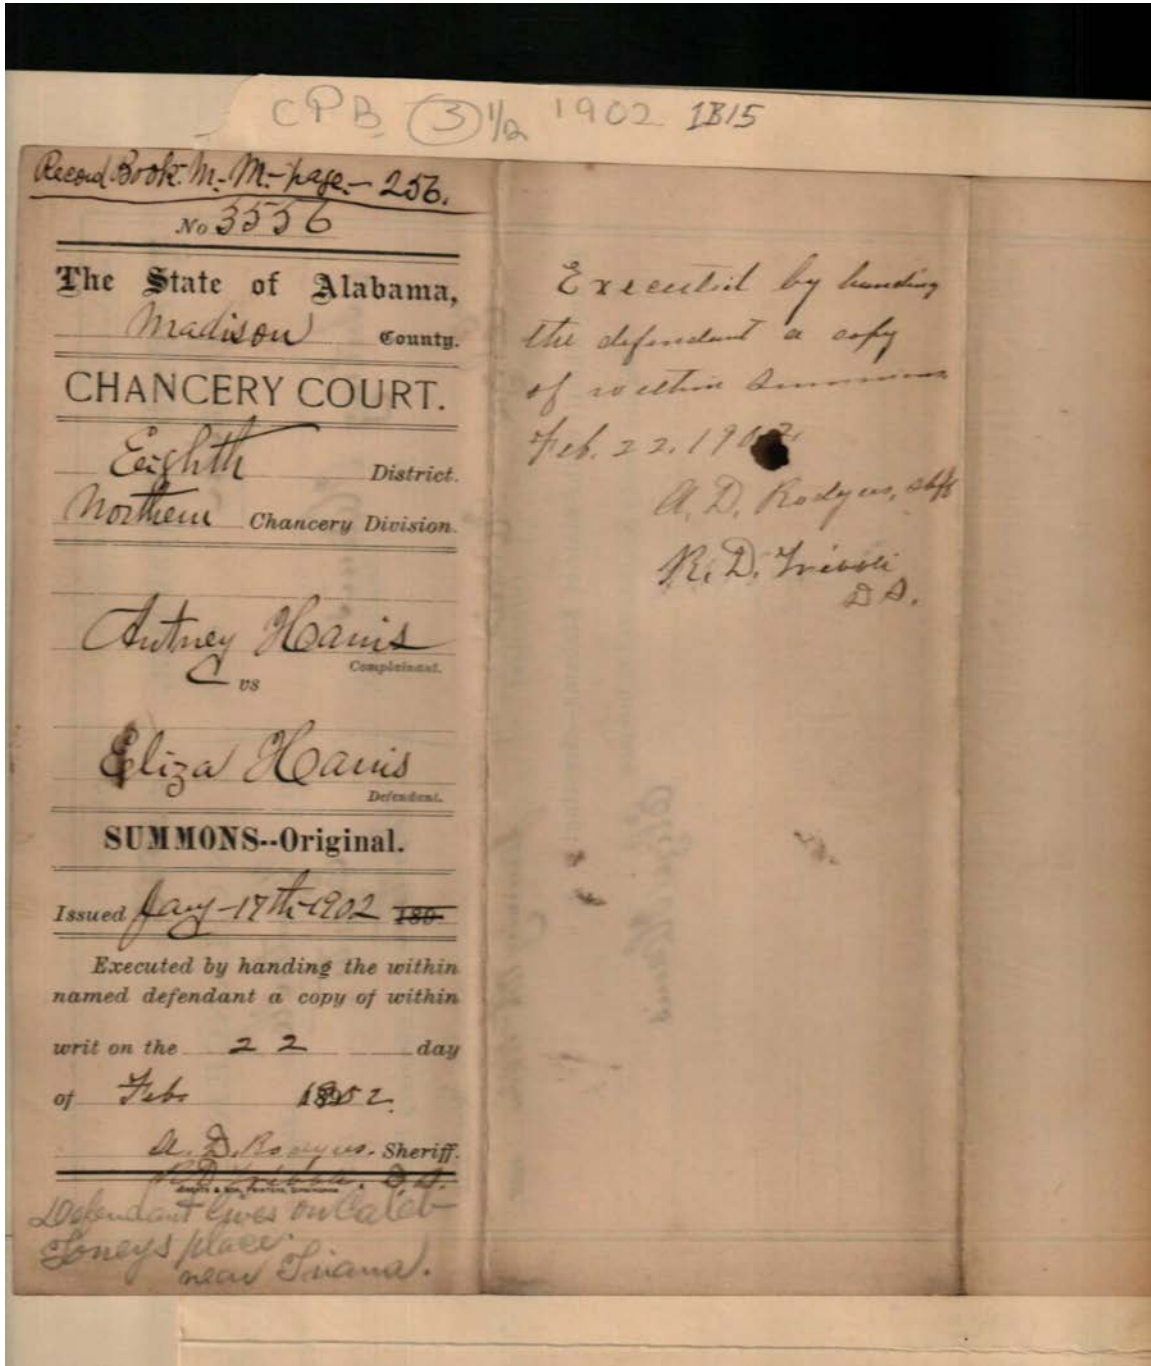 CPB (3) 1/2 1902 1B15
Record Book. M. M. page. 256.
No 3556
The State of Alabama,
Madison County.
CHANCERY COURT.
Eighth District.
Northern Chancery Division.
Antney Harris
Complainant.
vs
Eliza Harris
Defendant.
SUMMONS--Original.
Issued Jany 17th 1902 189
Executed by handing the within
named defendant a copy of within
writ on the 22 day
of Feb 1902.
A. D. Rodgers. Sheriff.
D. S.
Defendant lives on Caleb
Toneys place.
near Triana.
Executed by handing
the defendant a copy
of within summons
Feb. 22. 1902
A. D. Rodgers, Shff
R. D.
D S.